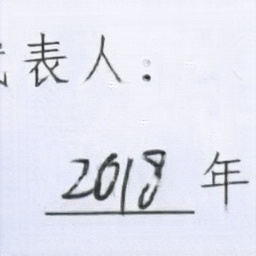 表人：
2018年